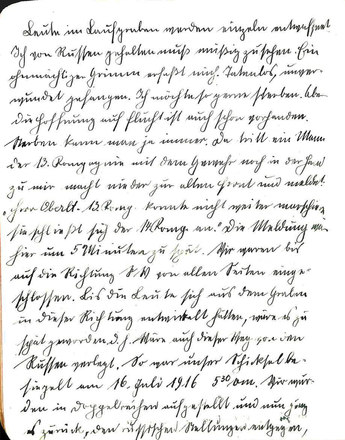 Leute im Laufgraben werden einzeln entwaffnet
Ich von Russen gehalten muß müßig zusehen. Ein
ohnmächtiger Grimm erfaßt mich. Tatenlos, unver-
wundet gefangen. Ich möchte so gerne sterben. Aber
die Hoffnung auf Flucht ist auch schon vorhanden.
Sterben kann man ja immer. Da tritt ein Mann
der 13. Kompagnie mit dem Gewehr noch in der Hand
zu mir macht nieder zur alten Front und meldet:
"Herr Oberlt. 13. Komp. konnte nicht weiter
sie schließt sich der 14. Komp. an." Die Meldung war
hier um 5 Minuten zu spät. Wir waren bis
auf die Richtung SW von allen Seiten einge-
schlossen. Bis die Leute sich aus dem Graben
in dieser Richtung entwickelt hätten, wäre es zu
spät geworden d.h. wäre auch dieser Weg von den
Russen verlegt. So war unser Schicksal be-
siegelt am 16. Juli 1916 5³⁰ Vm. Wir wur-
den in Doppelreihen aufgestellt und nun ging
es zurück, den russischen Stellungen entgegen,